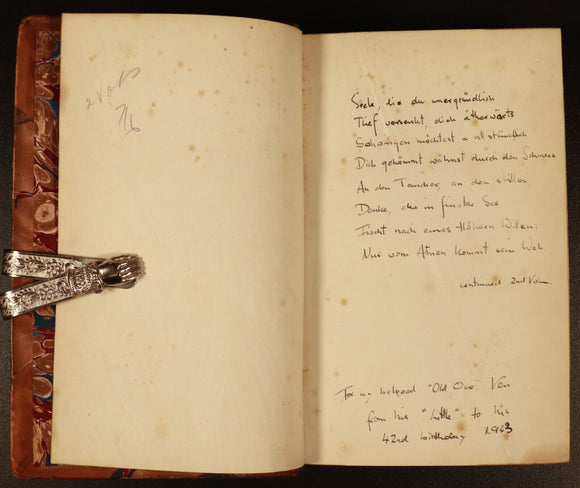 2 Vols
7/6
Seele, die du unergründlich
Tief versenkt, dich ätherwärts
Schwingen möchtest allstündlich
Dich gehemmt wähnst durch den Schmerz
An den Taucher, an den stillen
Denke, der in finstrer See
Fischt nach eines Höhern Willen:
Nur vom Atmen kommt sein Weh
continued 2nd Volum.
For my beloved "Old One" Ven
from his "Little" to his
42nd birthday 1963